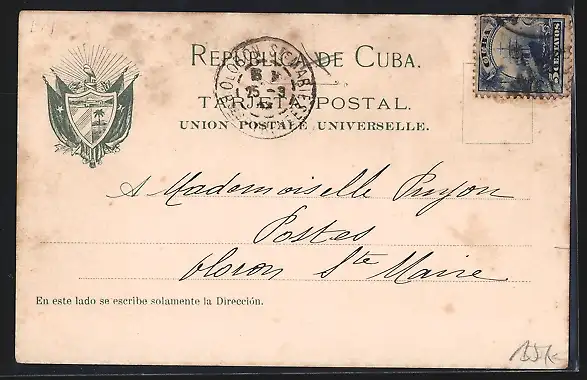 REPUBLICA DE CUBA.
TARJETA POSTAL.
UNION POSTALE UNIVERSELLE.
CUBA
CENTAVOS
OLORON Ste MARIE
25 - 3
A Mademoiselle Puyou
Postes
Oloron Ste Marie
En este lado se escribe solamente la Dirección.